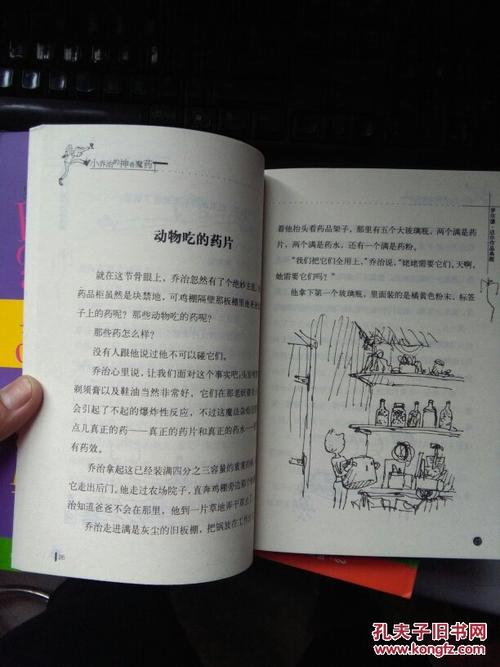 小乔治的神奇魔药
动物吃的药片
就在这节骨眼上,乔治忽然有了个绝妙主
药品柜虽然是块禁地,可鸡棚隔壁那板棚里他
子上的药呢?那些动物吃的药呢?
那些药怎么样?
没有人跟他说过他不可以碰它们。
乔治心里说,让我们面对这个事实吧,头发
剃须膏以及鞋油当然非常好,它们在那老妖
会引起了不起的爆炸性反应,不过这魔法
点儿真正的药——真正的药片和真正的药水
有药效。
乔治拿起这已经装满四分之三容量的
它走出后门。他走过农场院子,直奔鸡棚旁边那个
治知道爸爸不会在那里,他到一片草地
乔治走进满是灰尘的旧板棚,把锅放在工作
26
罗尔德·达尔作品典藏
着他抬头看药品架子,那里有五个大玻璃瓶,两个满是药
片,两个满是药水,还有一个满是药粉。
“我们把它们全用上,”乔治说,“姥姥需要它们。天啊,
她需要它们吗?”
他拿下第一个玻璃瓶,里面装的是橘黄色粉末。标签
27
孔夫子旧书网
www.kongfz.com